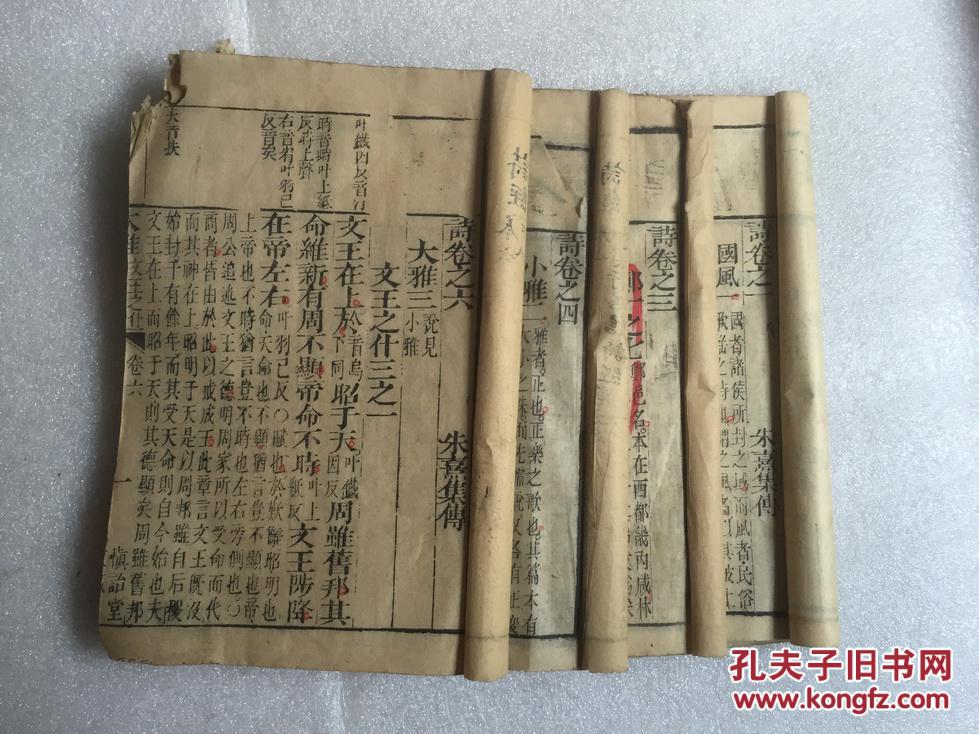 詩卷之六
朱熹集傳
大雅三 說見小雅
文王之什三之一
文王在上於 音烏下同 昭于天 叶鐵因反 周雖舊邦其
命維新有周不顯帝命不時 叶上紙反 文王陟降
在帝左右 叶羽已反 ○賦也於歎辭昭明也
上帝也不時猶言豈不時也左右旁側也○
周公追述文王之德明周家所以受命而代
商者皆由於此以戒成王此章言文王既沒
而其神在上昭明于天是以周邦雖自后稷
始封千有餘年而其受天命則自今始也夫
文王在上而昭于天則其德顯矣周雖舊邦
大雅文王之什 卷六 一 慎詒堂
叶鐵因反音
時音時叶上紙
反時上聲
右音有叶羽已
反音矣
夫音扶
詩經卷
詩卷之四
小雅二
雅者正也正樂之歌也其篇本有
詩卷之三
鄭邑名本在西都畿內咸林
詩卷之一
朱熹集傳
國風一
國者諸侯所封之域而風者民俗
歌謠之詩也謂之風者以其被上
孔夫子旧书网
www.kongfz.com